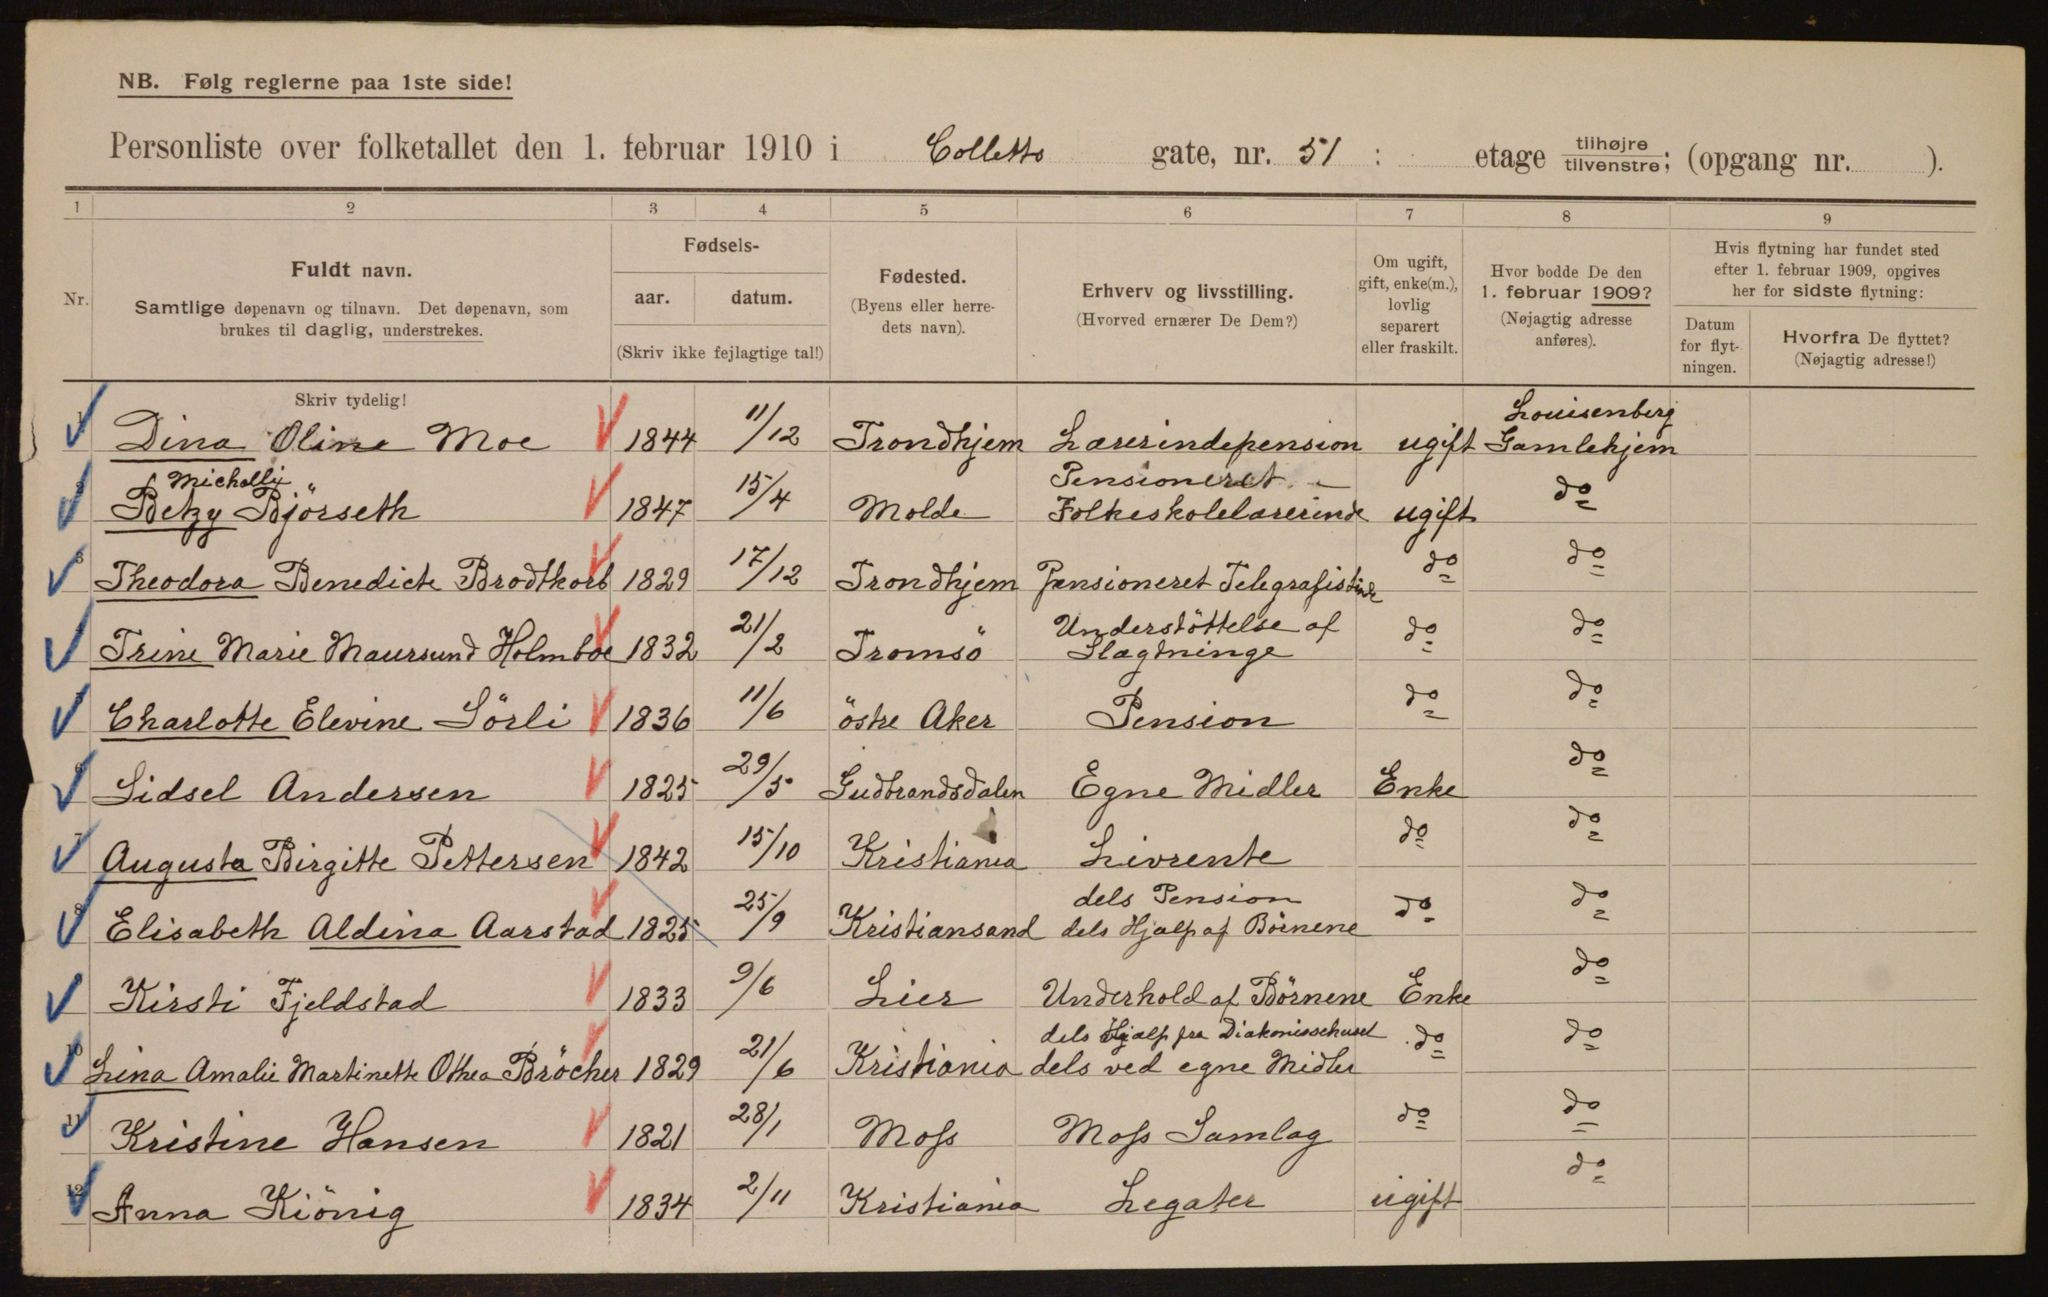 NB. Følg reglerne paa 1ste side!
Personliste over folketallet den 1. februar 1910 i Colletts gate, nr. 51 : etage tilhøjre tilvenstre; (opgang nr. ).
1 2 3 4 5 6 7 8 9
Nr.
Fuldt navn.
Samtlige døpenavn og tilnavn. Det døpenavn, som
brukes til daglig, understrekes.
Fødsels-
aar. datum.
(Skriv ikke fejlagtige tal!)
Fødested.
(Byens eller herre-
dets navn).
Erhverv og livsstilling.
(Hvorved ernærer De Dem?)
Om ugift,
gift, enke(m.),
lovlig
separert
eller fraskilt.
Hvor bodde De den
1. februar 1909?
(Nøjagtig adresse
anføres).
Hvis flytning har fundet sted
efter 1. februar 1909, opgives
her for sidste flytning:
Datum
for flyt-
ningen.
Hvorfra De flyttet?
(Nøjagtig adresse!)
Skriv tydelig!
1 Dina Oline Moe 1844 11/12 Trondhjem Lærerindepension ugift Louisenberg Gamlehjem
2 Betzy Michallix Björseth 1847 15/4 Molde Pensioneret Folkeskolelærerinde ugift do
3 Theodora Benedicte Brodtkorb 1829 17/12 Trondhjem Pensioneret Telegrafistinde do do
4 Trine Marie Maursund Holmboe 1832 21/2 Tromsö Understöttelse af Slægtninge do do
5 Charlotte Elevine Sörli 1836 11/6 östre Aker Pension do do
6 Sidsel Andersen 1825 29/5 Gudbrandsdalen Egne Midler Enke do
7 Augusta Birgitte Pettersen 1842 15/10 Kristiania Livrente do do
8 Elisabeth Aldina Aarstad 1825 25/9 Kristiansand dels Pension dels Hjælp af Börnene do do
9 Kirsti Fjeldstad 1833 9/6 Lier Underhold af Börnene Enke do
10 Lina Amalie Martinette Othea Bröcher 1829 21/6 Kristiania dels Hjælp fra Diakonissehuset dels ved egne Midler do do
11 Kristine Hansen 1821 28/1 Moss Moss Samlag do do
12 Anna Kiönig 1834 2/11 Kristiania Legater ugift do